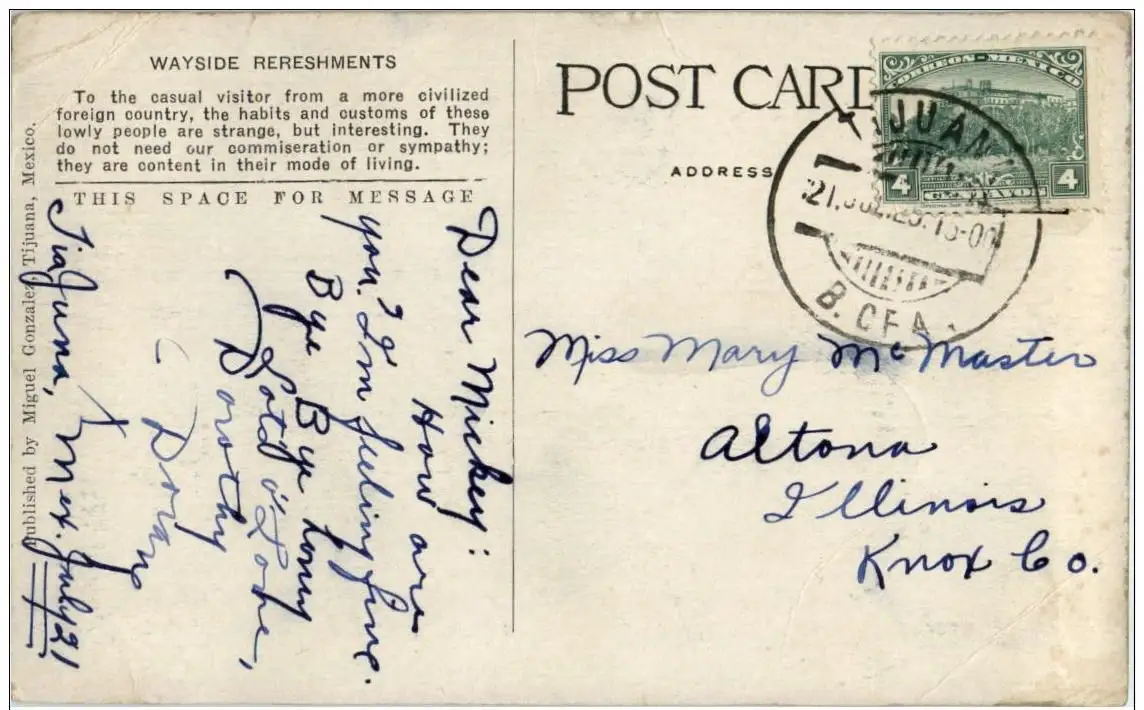 WAYSIDE RERESHMENTS
To the casual visitor from a more civilized
foreign country, the habits and customs of these
lowly people are strange, but interesting. They
do not need our commiseration or sympathy;
they are content in their mode of living.
THIS SPACE FOR MESSAGE
Published by Miguel Gonzalez, Tijuana, Mexico.
Dear Mickey:
How are
you? I'm feeling fine.
Bye Bye Honey
Lots o' Love,
Dorothy
Tia Juna, Mex. July 21
POST CARD
ADDRESS
CORREOS-MEXICO
4 CENTAVOS 4
JUAN
21.JUL.
B. CFA.
Miss Mary McMaster
Altona
Illinois
Knox Co.